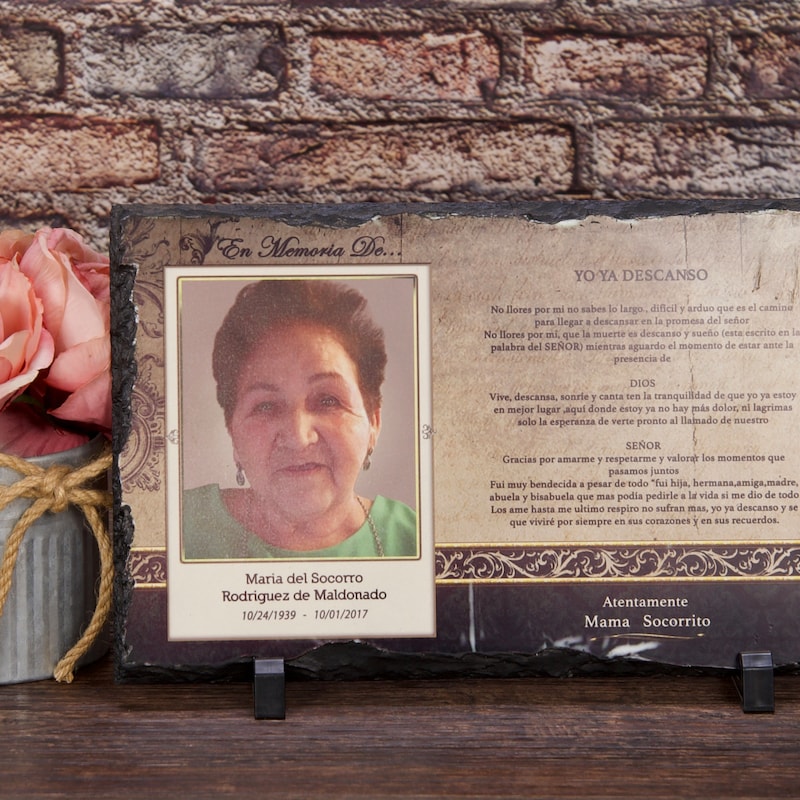 En Memoria De...
Maria del Socorro
Rodriguez de Maldonado
10/24/1939 - 10/01/2017
YO YA DESCANSO
No llores por mi no sabes lo largo , dificil y arduo que es el camino
para llegar a descansar en la promesa del señor
No llores por mi, que la muerte es descanso y sueño (esta escrito en la
palabra del SEÑOR) mientras aguardo el momento de estar ante la
presencia de
DIOS
Vive, descansa, sonrie y canta ten la tranquilidad de que yo ya estoy
en mejor lugar ,aqui donde estoy ya no hay más dolor, ni lagrimas
solo la esperanza de verte pronto al llamado de nuestro
SEÑOR
Gracias por amarme y respetarme y valorar los momentos que
pasamos juntos
Fui muy bendecida a pesar de todo "fui hija, hermana,amiga,madre,
abuela y bisabuela que mas podia pedirle a la vida si me dio de todo
Los ame hasta me ultimo respiro no sufran mas, yo ya descanso y se
que viviré por siempre en sus corazones y en sus recuerdos.
Atentamente
Mama Socorrito